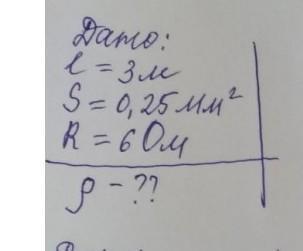 Дано:
l = 3 м
S = 0,25 мм²
R = 6 Ом
ρ - ??